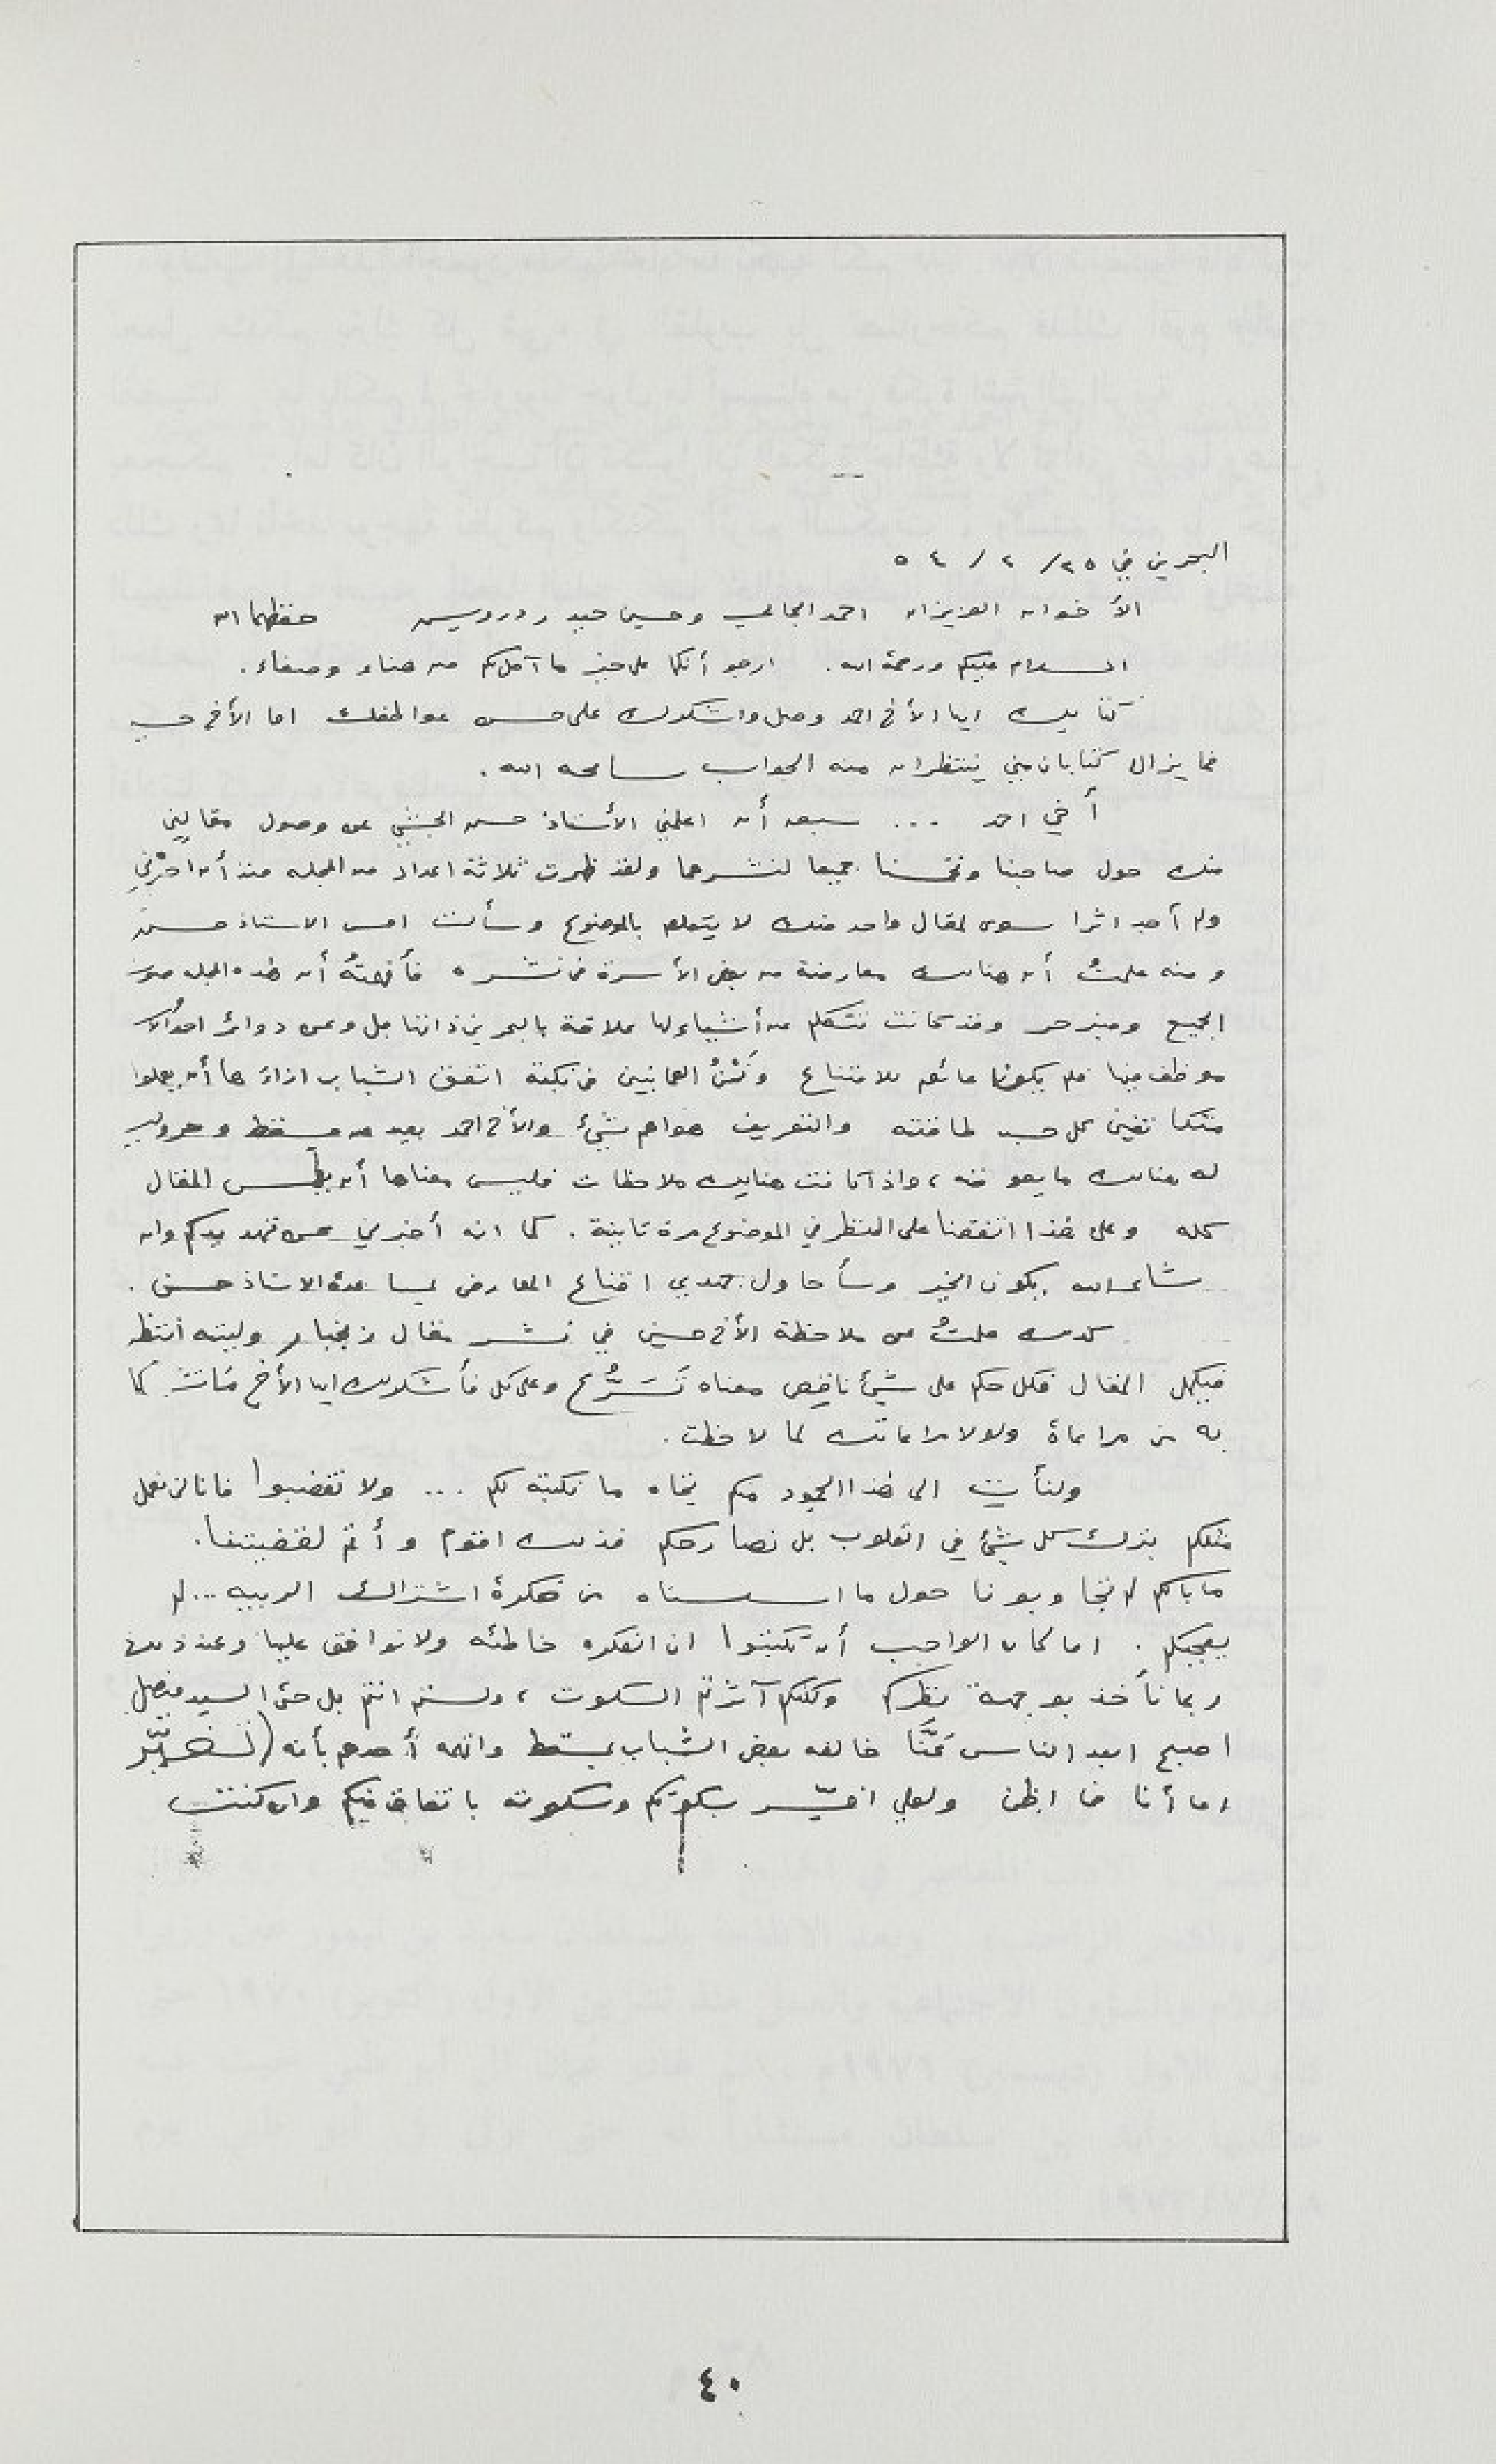 البحرين في ٢٥/ ٢ / ٥٤
الأخوان العزيزان احمد الجمالي وحسين حيدر درويس حفظهما الله
السلام عليكم ورحمة الله. ارجو أنكما على خير ما آمل لكم من هناء وصفاء.
كتابك ايها الأخ احمد وصل واشكرك على حسن عواطفك اما الأخ حسين
فما يزال كتابان مني ينتظران منه الجواب سامحه الله.
أخي احمد ... سبق أن اعلمني الأستاذ حسن الجشي عن وصول مقالين
منك حول صاحبنا وتحمسنا جميعا لنشرهما ولقد ظهرت ثلاثة اعداد من المجله منذ أن اخبرني
ولم أجد اثرا سوى لمقال واحد منك لا يتعلق بالموضوع وسألت امس الاستاذ حسن
ومنه علمتُ أن هنالك معارضة من بعض الأسرة في نشره فأفهمتهُ أن هذه المجله صوت
الجميع ومنبر حر وقد كانت تتكلم عن أشياء لها علاقة بالبحرين ذاتها بل وعن دوائر
موظف فيها فلم يكونا عائق للامتناع ونَحْنُ العمانيين في نكبة اتفق الشباب ازاءها أن يعملوا
متكاتفين كل حسب طاقته والتعريف هو اهم شيئ والأخ احمد بعيد عن مسقط وهروب
له هنالك ما يعوقه ، واذا كانت هنالك ملاحظات فليس معناها أن يطمس المقال
كله وعلى هذا اتفقنا على النظر في الموضوع مرة ثانية . كما انه أخبرني عن تهديدكم وان
شاء الله يكون الخير وسأحاول جهدي اقناع المعارض بمساعدة الاستاذ حسن .
كذلك علمتُ عن ملاحظة الأخ حسين في نشر مقال زنجبار وليته انتظر
فيكمل المقال فكل حكم على شيئ ناقص معناه تَسَرُّع وعلى كل فأشكرك ايها الأخ كما
به من مراعاة ولولا مراعاتك لما لاحظت.
ولنأت الى هذا الجمود منكم تجاه ما نكتبه لكم ... ولا تغضبوا فاننا لن نعمل
مثلكم بترك كل شيئ في القلوب بل نصارحكم فذلك اقوم وأتم لقضيتنا.
ما بالكم لم تجاوبونا حول ما اسسناه من فكرة اشتراك الربيه ... لم
يعجبكم . اما كان الواجب أن تكتبوا ان الفكره خاطئه ولا نوافق عليها وعند ذلك
ربما نأخذ بوجهة نظركم ولكنكم آثرتم السكوت ، ولستم انتم بل حتى السيد فيصل
اصبح ابعد الناس عَنَّا خالفه بعض الشباب بمسقط واتهمه أحدهم بأنه
اما أنا فما اظن ولعلي افسّر سكوتكم وسكوته باتفاق فيكم وان كنت
٤٠